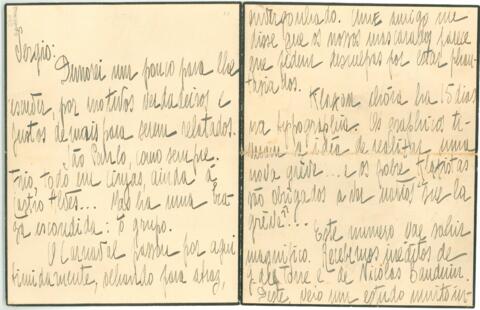 Sergio:
Demorei um pouco para lhe
escrever, por motivos verdadeiros e
justos de mais para serem relatados.
São Paulo, como sempre.
Frio, todo em cinzas, ainda á
Castro Alves... Mas ha uma
escondida: o grupo.
O Carnaval passou por aqui
timidamente, olhando para atraz,
envergonhado. Um amigo me
disse que os nossos mascarados parece
que pedem desculpas por estar phan-
tasiados.
Klaxon chóra ha 15 dias
na typographia. Os graphicos ti-
veram a idéia de realizar uma
nova gréve... e os pobre klaxistas
são obrigados a dar "muitos" "vive la
gréve!".
Este numero vae sahir
magnifico. Recebemos ineditos de
g. de Torre e de Nicolas Bauduin.
Deste, veio um estudo muito in-